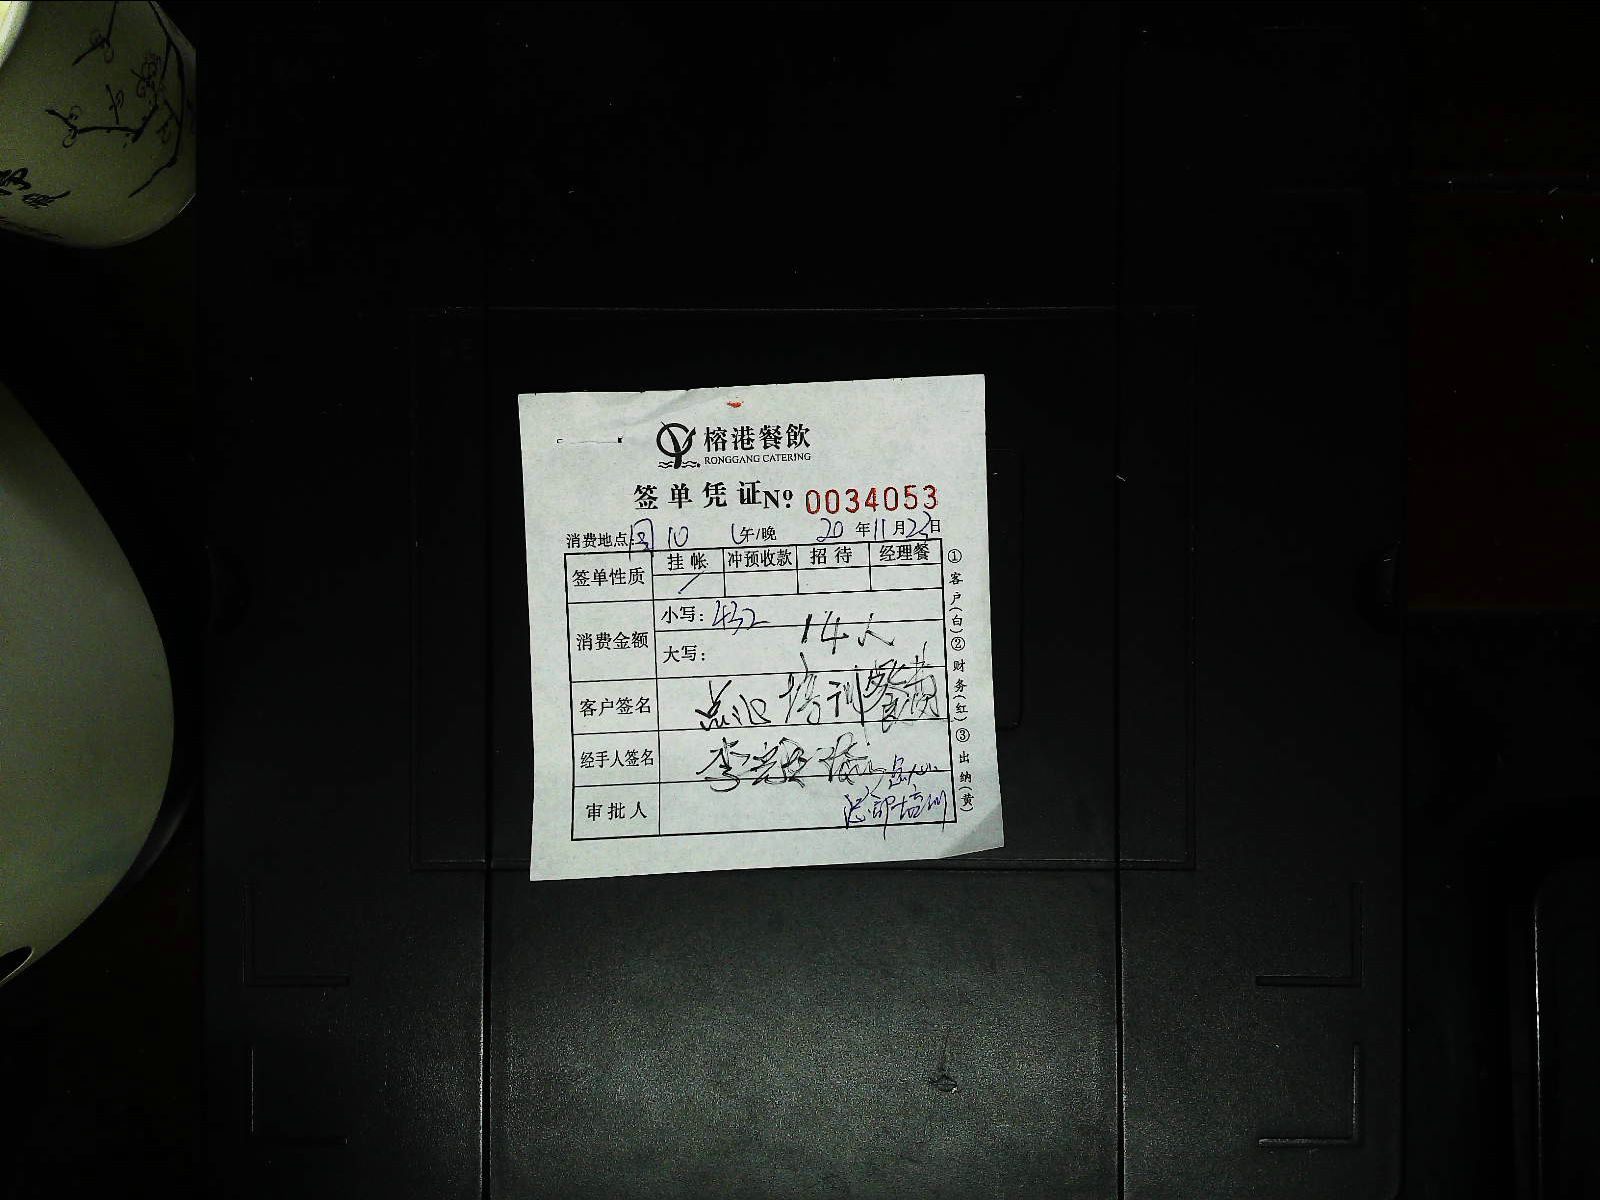 榕港餐飲
RONGGANG CATERING
签单凭证 Nº 0034053
消费地点: 10 午/晚 20年11月23日
签单性质 挂帐 冲预收款 招待 经理餐
消费金额 小写: 432
大写: 14人
客户签名 点心培训餐费
经手人签名 李
审批人 点心
总部培训
①客户(白)②财务(红)③出纳(黄)